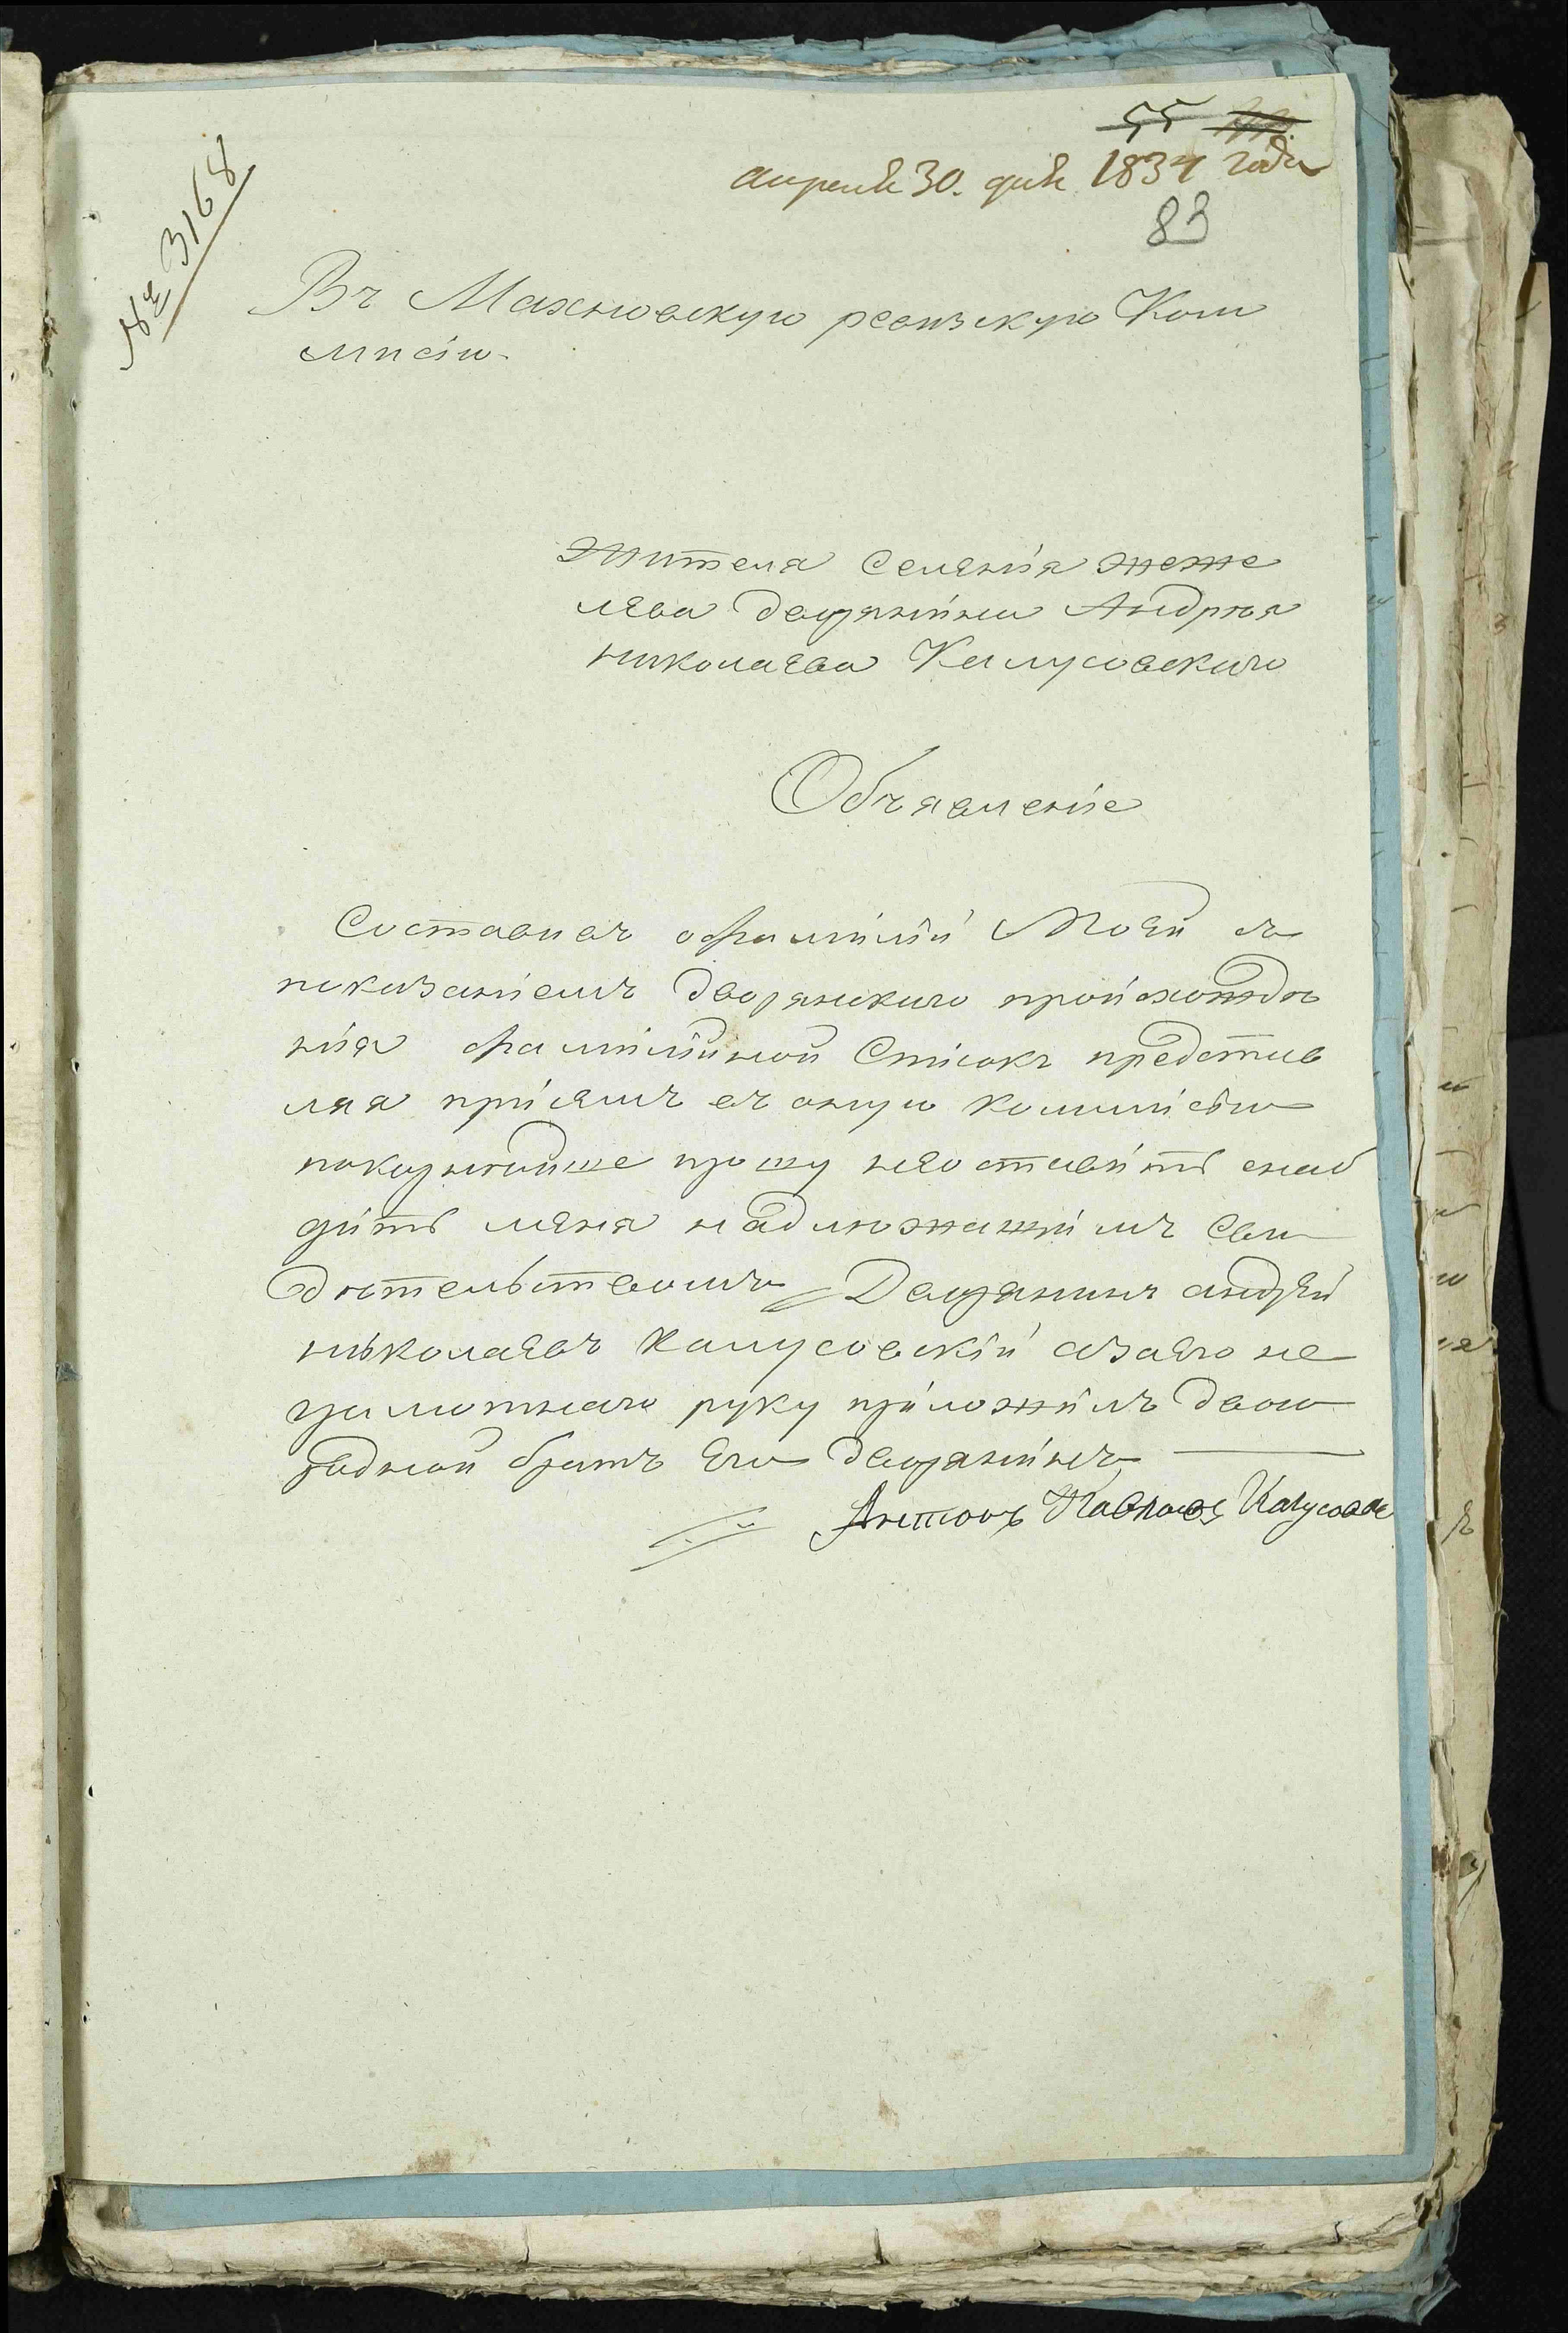 55
апреля 30. дня 1834 года
83
№ 3168
Въ Махновскую ревизскую Ком
мисію.
Жителя Селенія Жеже
лева дворяніна Андрѣя
николаева Калусовскаго
Объявленіе
Составивъ о фаміліи Моей съ
показаніемъ дворянскаго происхожде
нія фамилійной Списокъ представ
ляя присемъ въ оную коммисію
покорнейше прошу неоставить снаб
дить меня надлюжащимъ Сви
дѣтельствомъ Дворянинъ андрей
николаевъ Калусовскій азаего не
грамотнаго руку приложилъ двою
родной братъ Его дворянінъ
Антонъ Павловъ Калусовск